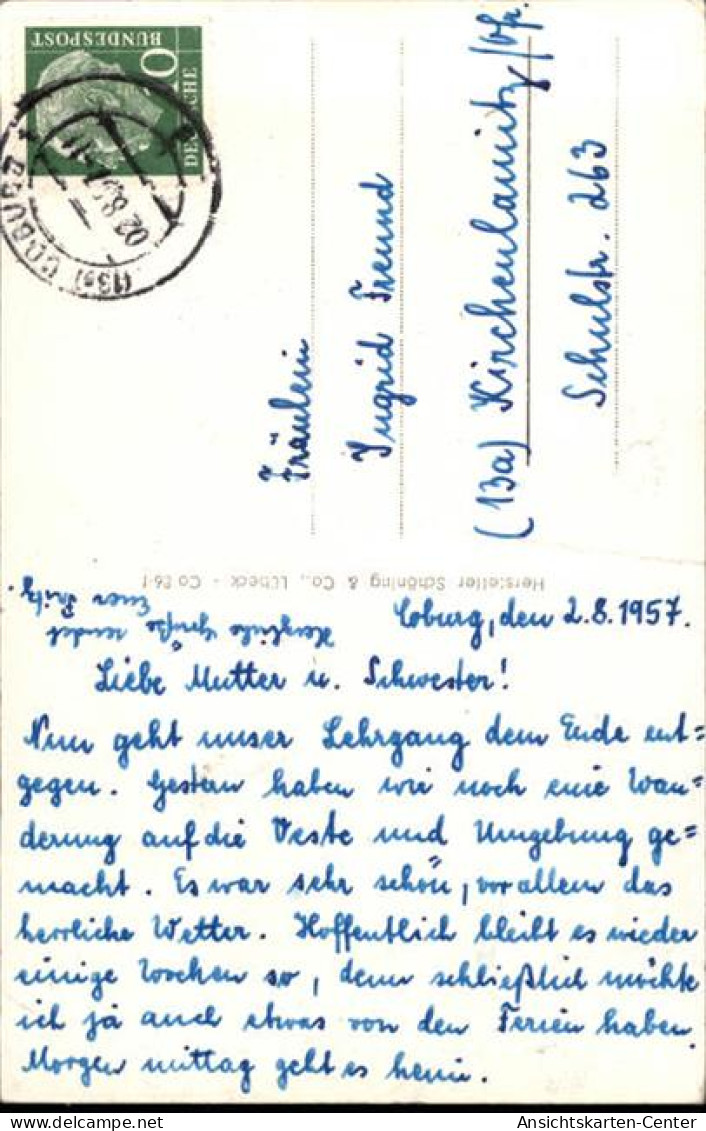 BUNDESPOST
DEUTSCHE
10
(13a) COBURG
02.8.57
Fräulein
Ingrid Freund
(13a) Kirchenlamitz/Ofr.
Schulstr. 263
Hersteller Schöning & Co., Lübeck - Co 86
Coburg, den 2.8.1957.
Liebe Mutter u. Schwester!
Nun geht unser Lehrgang dem Ende ent=
gegen. Gestern haben wir noch eine Wan=
derung auf die Veste und Umgebung ge=
macht. Es war sehr schön, vor allem das
herrliche Wetter. Hoffentlich bleibt es wieder
einige Wochen so, denn schließlich möchte
ich ja auch etwas von den Ferien haben.
Morgen mittag geht es heim.
Herzliche Grüße sendet
Euer Fritz.
Ansichtskarten-Center